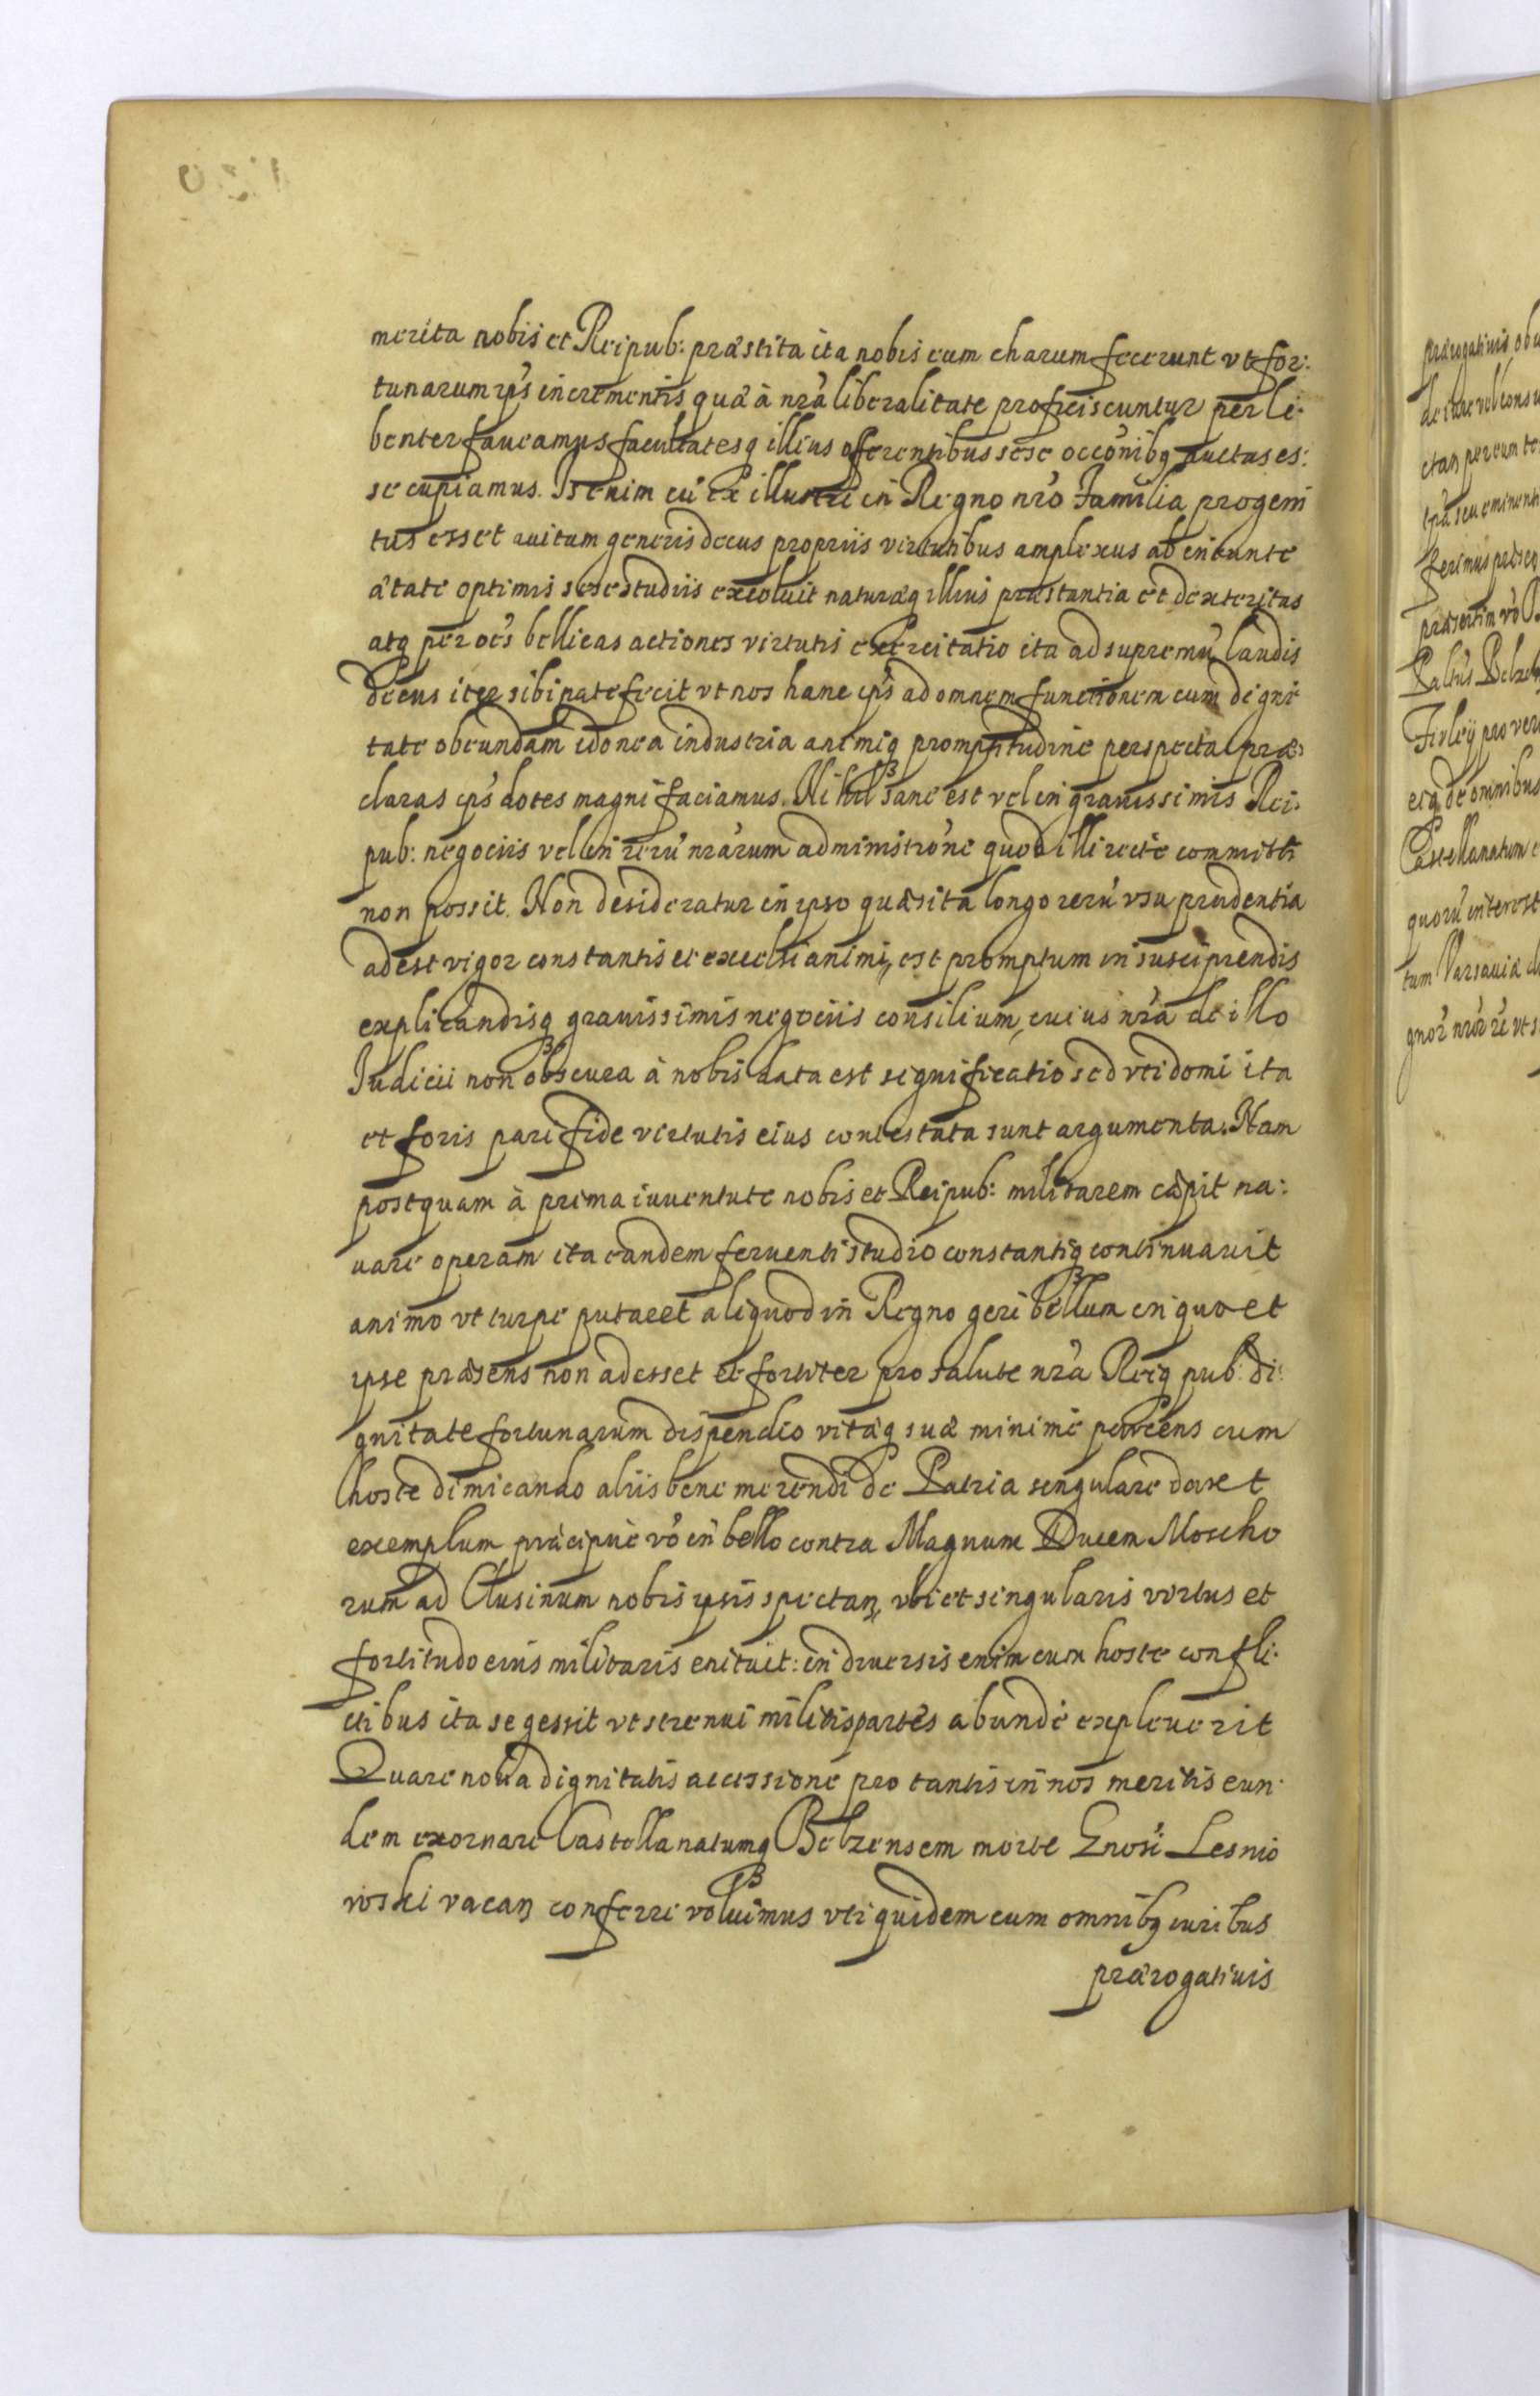 merita nobis et Reipub: præstita ita nobis eum charum fecerunt vt for:
tunarum ips incrementis quæ à nrã liberalitate proficiscuntur per li:
benter faueamus facultatesq illius offerentibus sese occõnibq auctas es:
se cupiamus. Is enim cũ ex illustri in Regno nrõ Familia progeni
tus esset auitum generis decus propriis virtutibus amplexus ab ineunte
ætate optimis sese studiis excoluit naturæq illius præstantia et dexteritas
atq per oẽs bellicas actiones virtutis exercitatio ita ad supremũ laudis
decus iter sibi patefecit vt nos hanc ips ad omnem functionem cum digni
tate obeundam idonea industria animiq promptitudine perspecta præ:
claras ips dotes magni faciamus. Nihil sane est vel in grauissimis Rei:
pub: negociis vel in rerũ nrãrum administrõne quod illi recte committi
non possit. Non desideratur in ipso quæsita longo rerũ vsu prudentia
adest vigor constantis et excelsi animi, est promptum in suscipiendis
explicandisq grauissimis negociis consilium, cuius nrã de illo
Iudicii non obscura à nobis data est significatio sed vti domi ita
et foris pari fide virtutis eius contestata sunt argumenta. Nam
postquam à prima iuuentute nobis et Reipub: militarem cæpit na:
uare operam ita eandem feruenti studio constantiq continuauit
animo vt turpe putaret aliquod in Regno geri bellum in quo et
ipse præsens non adesset et fortiter pro salute nrã Reiq pub: di:
gnitate fortunarum dispendio vitæq suæ minime parcens cum
hoste dimicando aliis bene merendi de Patria singulare daret
exemplum, præcipue võ in bello contra Magnum Ducem Moscho
rum ad Clusinum nobis ipsis spectan, vbi et singularis virtus et
fortitudo eius militaris enituit: in diuersis enim cum hoste confli:
ctibus ita se gessit vt strenui militis partes abunde expleuerit
Quare noua dignitatis accessione pro tantis in nos meritis eun:
dem exornare Castellanatumq Belzensem morte Gnosi Lesnio
wski vacan conferre voluimus vti quidem cum omnibq iuribus
prærogatiuis